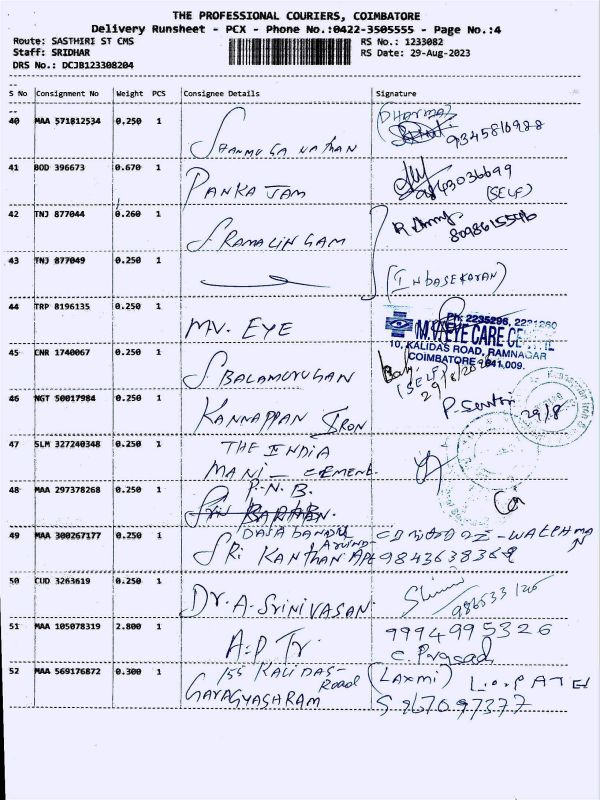 THE PROFESSIONAL COURIERS, COIMBATORE
Delivery Runsheet - PCX - Phone No.:0422-3505555 - Page No.:4
Route: SASTHIRI ST CMS RS No.: 1233082
Staff: SRIDHAR RS Date: 29-Aug-2023
DRS No.: DCJB123308204
S No Consignment No Weight PCS Consignee Details Signature
40 MAA 571812534 0.250 1 SHANMUGA NATHAN (DHARMA) 9345816988
41 BOD 396673 0.670 1 PANKAJAM (SELF)
42 TNJ 877044 0.260 1 S. RAMALINGAM
43 TNJ 877049 0.250 1 (INBASEKARAN)
44 TRP 8196135 0.250 1 MV. EYE
Ph: 2235296, 2221260
M.V. EYE CARE CENTRE
10, KALIDAS ROAD, RAMNAGAR
COIMBATORE - 641 009.
45 CNR 1740067 0.250 1 S. BALAMURUGAN (SELF)
46 NGT 50017984 0.250 1 KANNAPPAN IRON 29/8
47 SLM 327240348 0.250 1 THE INDIA
MANI - CEMENT
48 MAA 297378268 0.250 1 P.N.B.
49 MAA 300267177 0.250 1 SRI KANTHAN APt 9843638368
50 CUD 3263619 0.250 1 Dr. A. SRINIVASAN.
51 MAA 105078319 2.800 1 A.P Tr. 9994995326
C. Prasad
52 MAA 569176872 0.300 1 155 KALIDAS- Road (LAXMI) L.O.PATEL